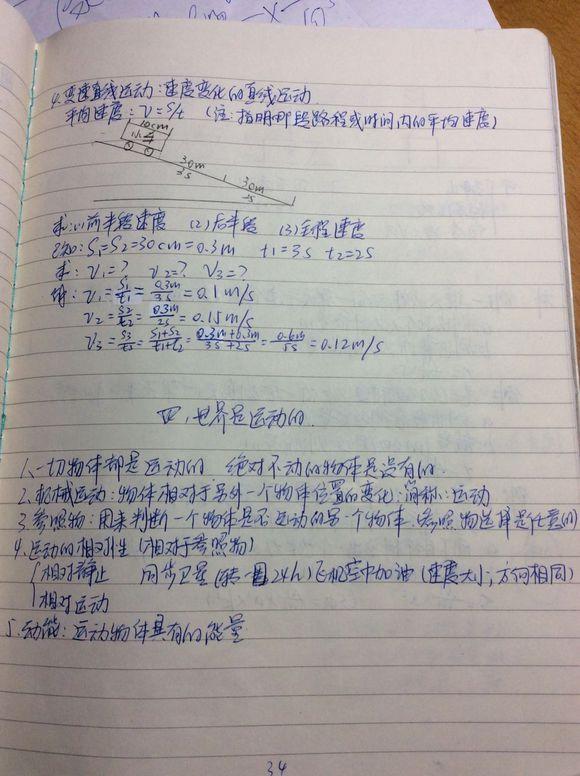 4.变速直线运动:速度变化的直线运动
平均速度:v=S/t (注:指明哪段路程或时间内的平均速度)
10cm
小车
30m
3s
30m
2s
求:(1)前半段速度 (2)后半段 (3)全程速度
已知:S₁=S₂=30cm=0.3m t₁=3s t₂=2s
求:v₁=? v₂=? v₃=?
解:v₁=S₁/t₁=0.3m/3s=0.1m/s
v₂=S₂/t₂=0.3m/2s=0.15m/s
v₃=S₃/t₃=S₁+S₂/t₁+t₂=0.3m+0.3m/3s+2s=0.6m/5s=0.12m/s
四、世界是运动的
1、一切物体都是运动的 绝对不动的物体是没有的.
2.机械运动:物体相对于另外一个物体位置的变化;简称:运动
3.参照物:用来判断一个物体是否运动的另一个物体.(参照物选择是任意的)
4.运动的相对性(相对于参照物)
{相对静止 同步卫星(转一圈24h)飞机空中加油(速度大小;方向相同)
相对运动
5.动能:运动物体具有的能量
34